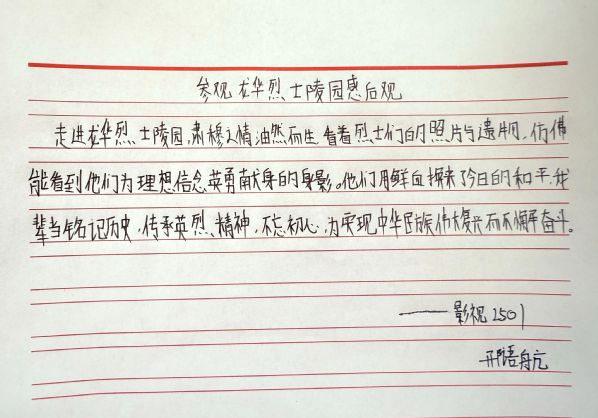 参观龙华烈士陵园感后观
走进龙华烈士陵园,肃穆之情油然而生 看着烈士们的照片与遗物,仿佛
能看到他们为理想信念英勇献身的身影。他们用鲜血换来了今日的和平,我
辈当铭记历史,传承英烈精神,不忘初心,为实现中华民族伟大复兴而不懈奋斗。
——影视2501
语航